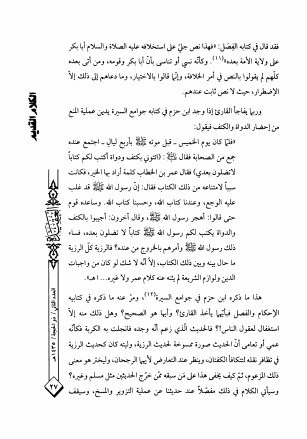 فقد قال في كتابه الفِصَل: «فهذا نص جليّ على استخلافه عليه الصلاة والسلام أبا بكر
على ولاية الأمة بعده»(١١). وكأنّه نسي أو تناسى بأنّ أبا بكر وقومه، ومن أتى بعده
كلّهم لم يقولوا بالنص في أمر الخلافة، وإنّما قالوا بالاختيار، وما دعاهم إلى ذلك إلّا
الإضطرار، حيث لا نص ثابت عندهم.
وربما يفاجأ القارئ إذا وجد ابن حزم في كتابه جوامع السيرة يدين عملية المنع
من إحضار الدواة والكتف فيقول:
«فلمّا كان يوم الخميس ـ قبل موته ﷺ بأربع ليال ـ اجتمع عنده
جمع من الصحابة فقال ﷺ: (ائتوني بكتف ودواة أكتب لكم كتاباً
لا تضلون بعدي) فقال عمر بن الخطاب كلمة أراد بها الخير، فكانت
سبباً لامتناعه من ذلك الكتاب فقال: إنّ رسول الله ﷺ قد غلب
عليه الوجع، وعندنا كتاب الله، وحسبنا كتاب الله. وساعده قوم
حتى قالوا: أهجر رسول الله ﷺ، وقال آخرون: أجيبوا بالكتف
والدواة يكتب لكم رسول الله ﷺ كتاباً لا تضلون بعده، فساء
ذلك رسول الله ﷺ وأمرهم بالخروج من عنده؟ فالرزية كلّ الرزية
ما حال بينه وبين ذلك الكتاب، إلّا أنّه لا شك لو كان من واجبات
الدين ولوازم الشريعة لم يثنه عنه كلام عمر ولا غيره...» اهـ
هذا ما ذكره ابن حزم في جوامع السيرة(١٢)، ومرّ عنه ما ذكره في كتابيه
الإحكام والفصل فبأيّهما يأخذ القارئ؟ وأيها هو الصحيح؟ وهل ذلك منه إلّا
استغفال لعقول الناس؟! فالحديث الّذي زعم أنّه وجده فانجلت به الكربة فكأنّه
عمي أو تعامى أنّ الحديث صورة ممسوخة لحديث الرزية، وليته كان كحديث الرزية
في تظافر نقله لتتكافأ الكفتان، وينظر عند التعارض لأيهما الرجحان، وليختر هو معنى
ذلك المزعوم، ثمّ كيف يخفى هذا على مَن سبقه ممّن خرّج الحديثين مثل مسلم وغيره؟
وسيأتي الكلام في ذلك مفصلاً عند حديثنا عن عملية التزوير والمسخ، وسيقف
الكلام القديم
العدد الثاني / ذو الحجة / ١٤٣٥هـ
٢٧